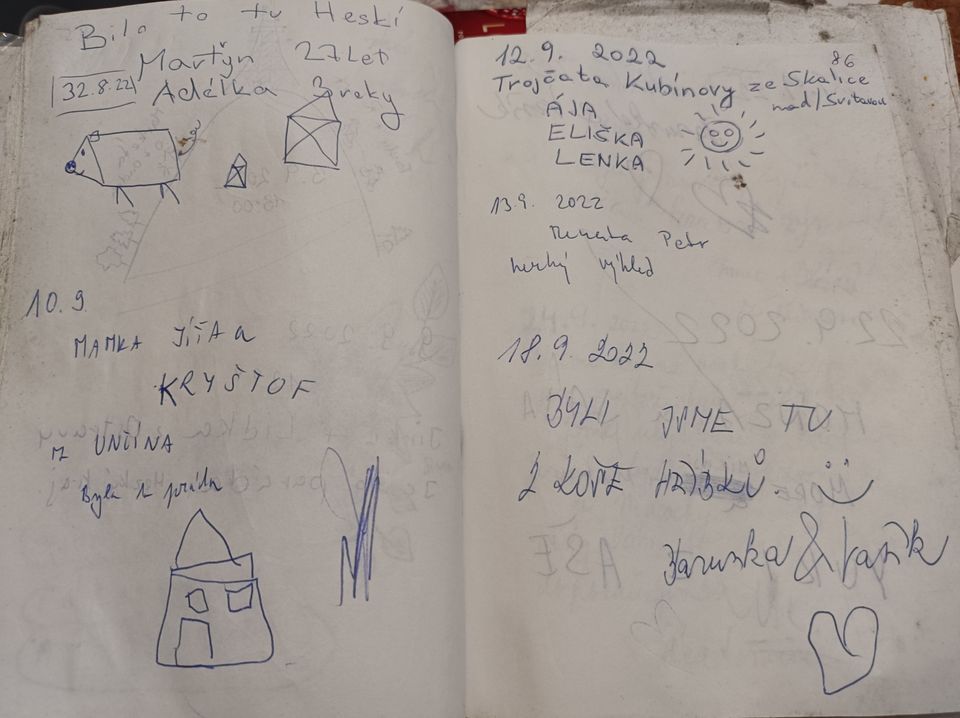 Bilo to tu Heskí
Martyn 27 Let
32.8.22 Adélka 3 roky
10.9.
MAMKA JÍŤA a
KRYŠTOF
Z UNČÍNA
Byla tu
86
12.9. 2022
Trojčata Kubínovy ze Skalice
nad/Svitavou
ÁJA
ELIŠKA
LENKA
13.9. 2022
Renata Petr
hezký výhled
18.9. 2022
BYLI JSME TU
2 KOŠE HŘÍBKŮ.
Barunka & Vašík